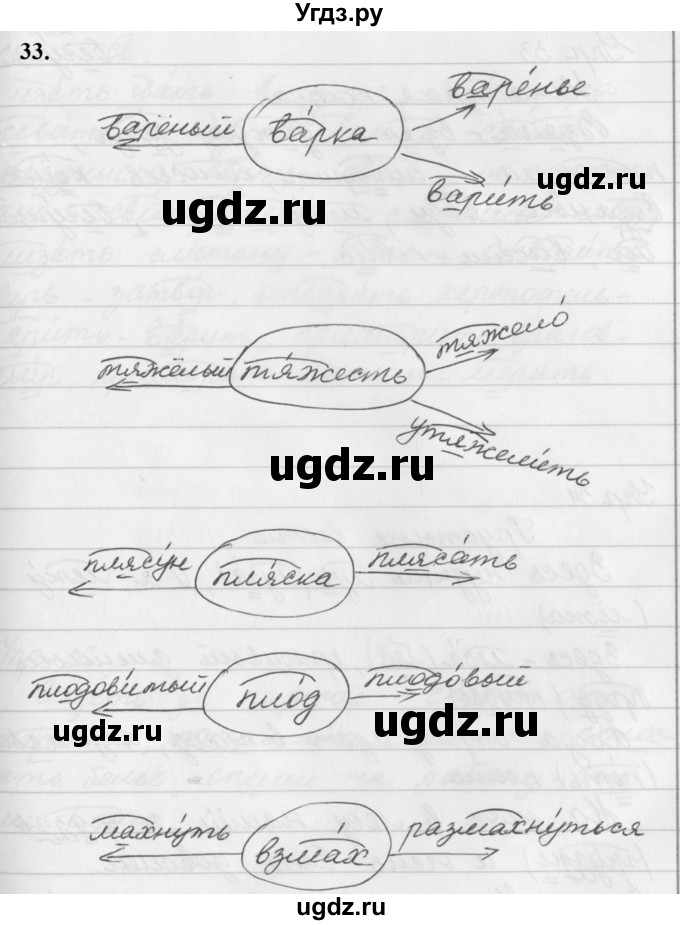 Угдз.ру
33.
варе́нье
варёный ва́рка
ugdz.ru
ugdz.ru
вари́ть
тяжело́
тяжёлый тя́жесть
утяжели́ть
ugdz.ru
плясу́н пля́ска пляса́ть
плодови́тый пло́д плодо́вый
ugdz.ru ugdz.ru
махну́ть взма́х размахну́ться
ugdz.ru